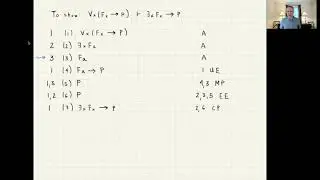 To show: ∀x(Fx → P) ⊢ ∃xFx → P
1 (1) ∀x(Fx → P) A
2 (2) ∃xFx A
3 (3) Fa A
1 (4) Fa → P 1 UE
1,3 (5) P 4,3 MP
1,2 (6) P 2,3,5 EE
1 (7) ∃xFx → P 2,6 CP